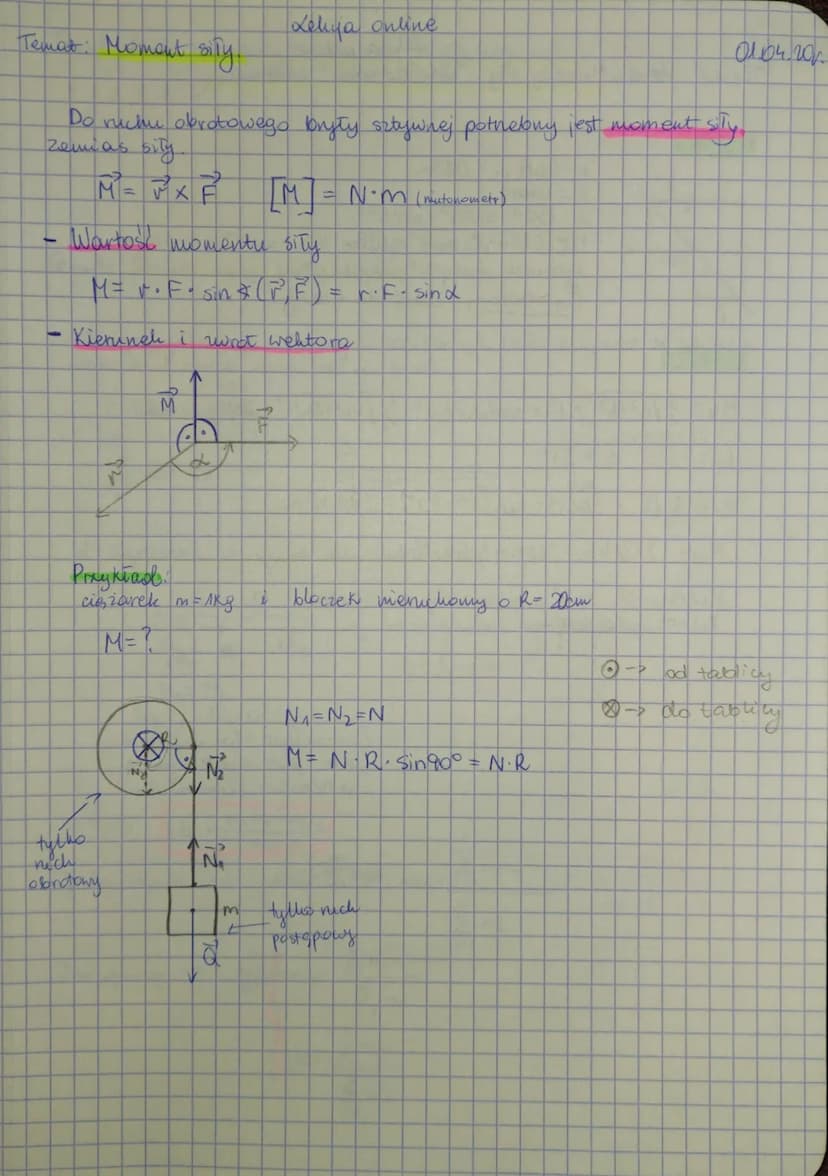 Lekcja online
Temat: Moment siły.
01.04.20r.
Do ruchu obrotowego bryły sztywnej potrzebny jest moment siły
zamias siły.
M = r × F [M] = N·m (niutonometr)
- Wartość momentu siły
M = r · F · sin ∢(r, F) = r · F · sinα
- Kierunek i zwrot wektora
M
F
r
α
Przykład:
ciężarek m = 1kg i bloczek nieruchomy o R = 20cm
M = ?
⊙ -> od tablicy
⊗ -> do tablicy
N₁ = N₂ = N
M = N · R · sin90° = N·R
R
N₂
N₂
tylko
ruch
obrotowy
N₁
m
tylko ruch
postępowy
Q